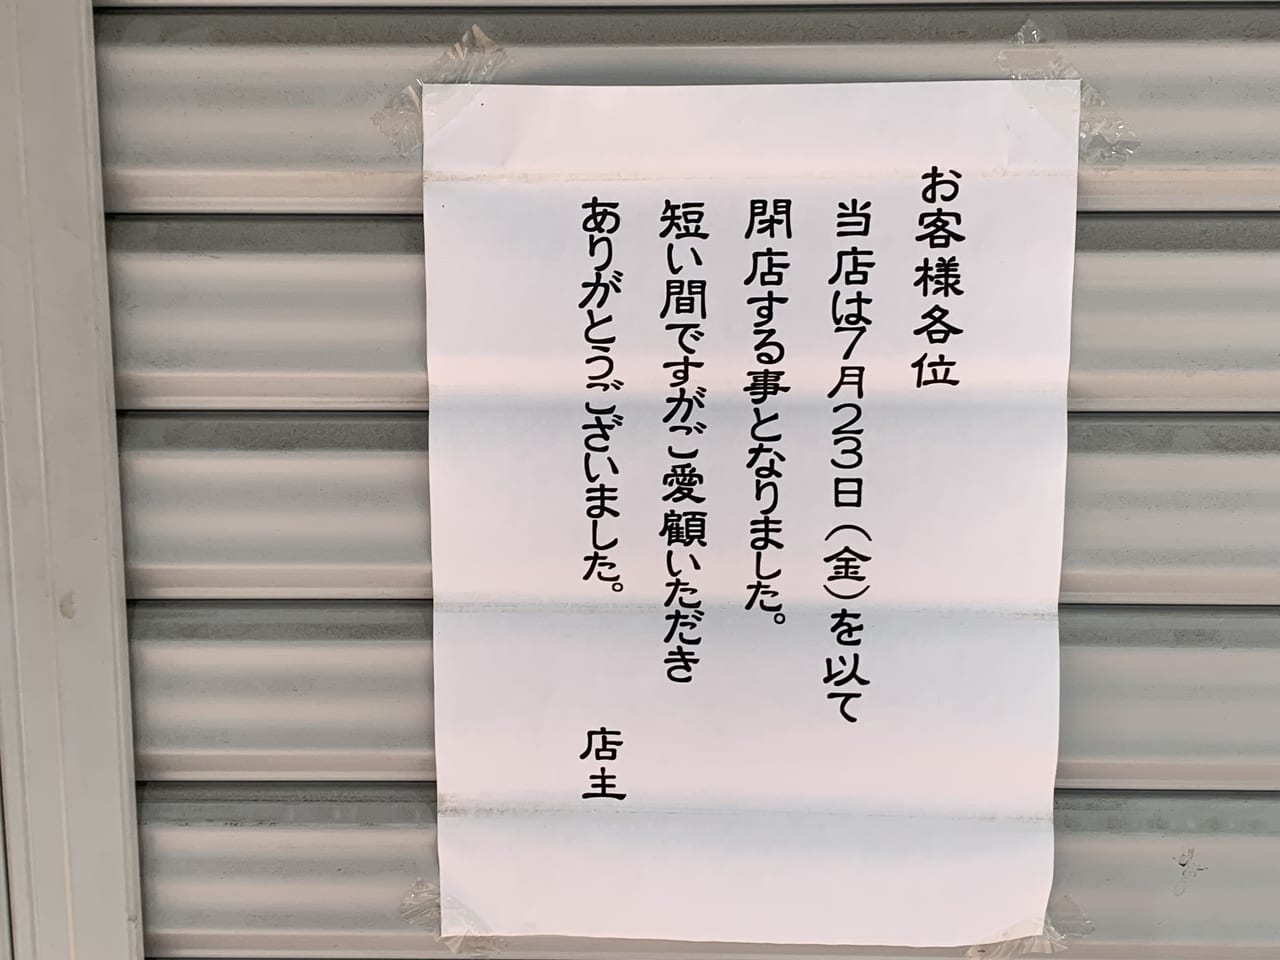 お客様各位
当店は7月23日（金）を以て
閉店する事となりました。
短い間ですがご愛顧いただき
ありがとうございました。
店主